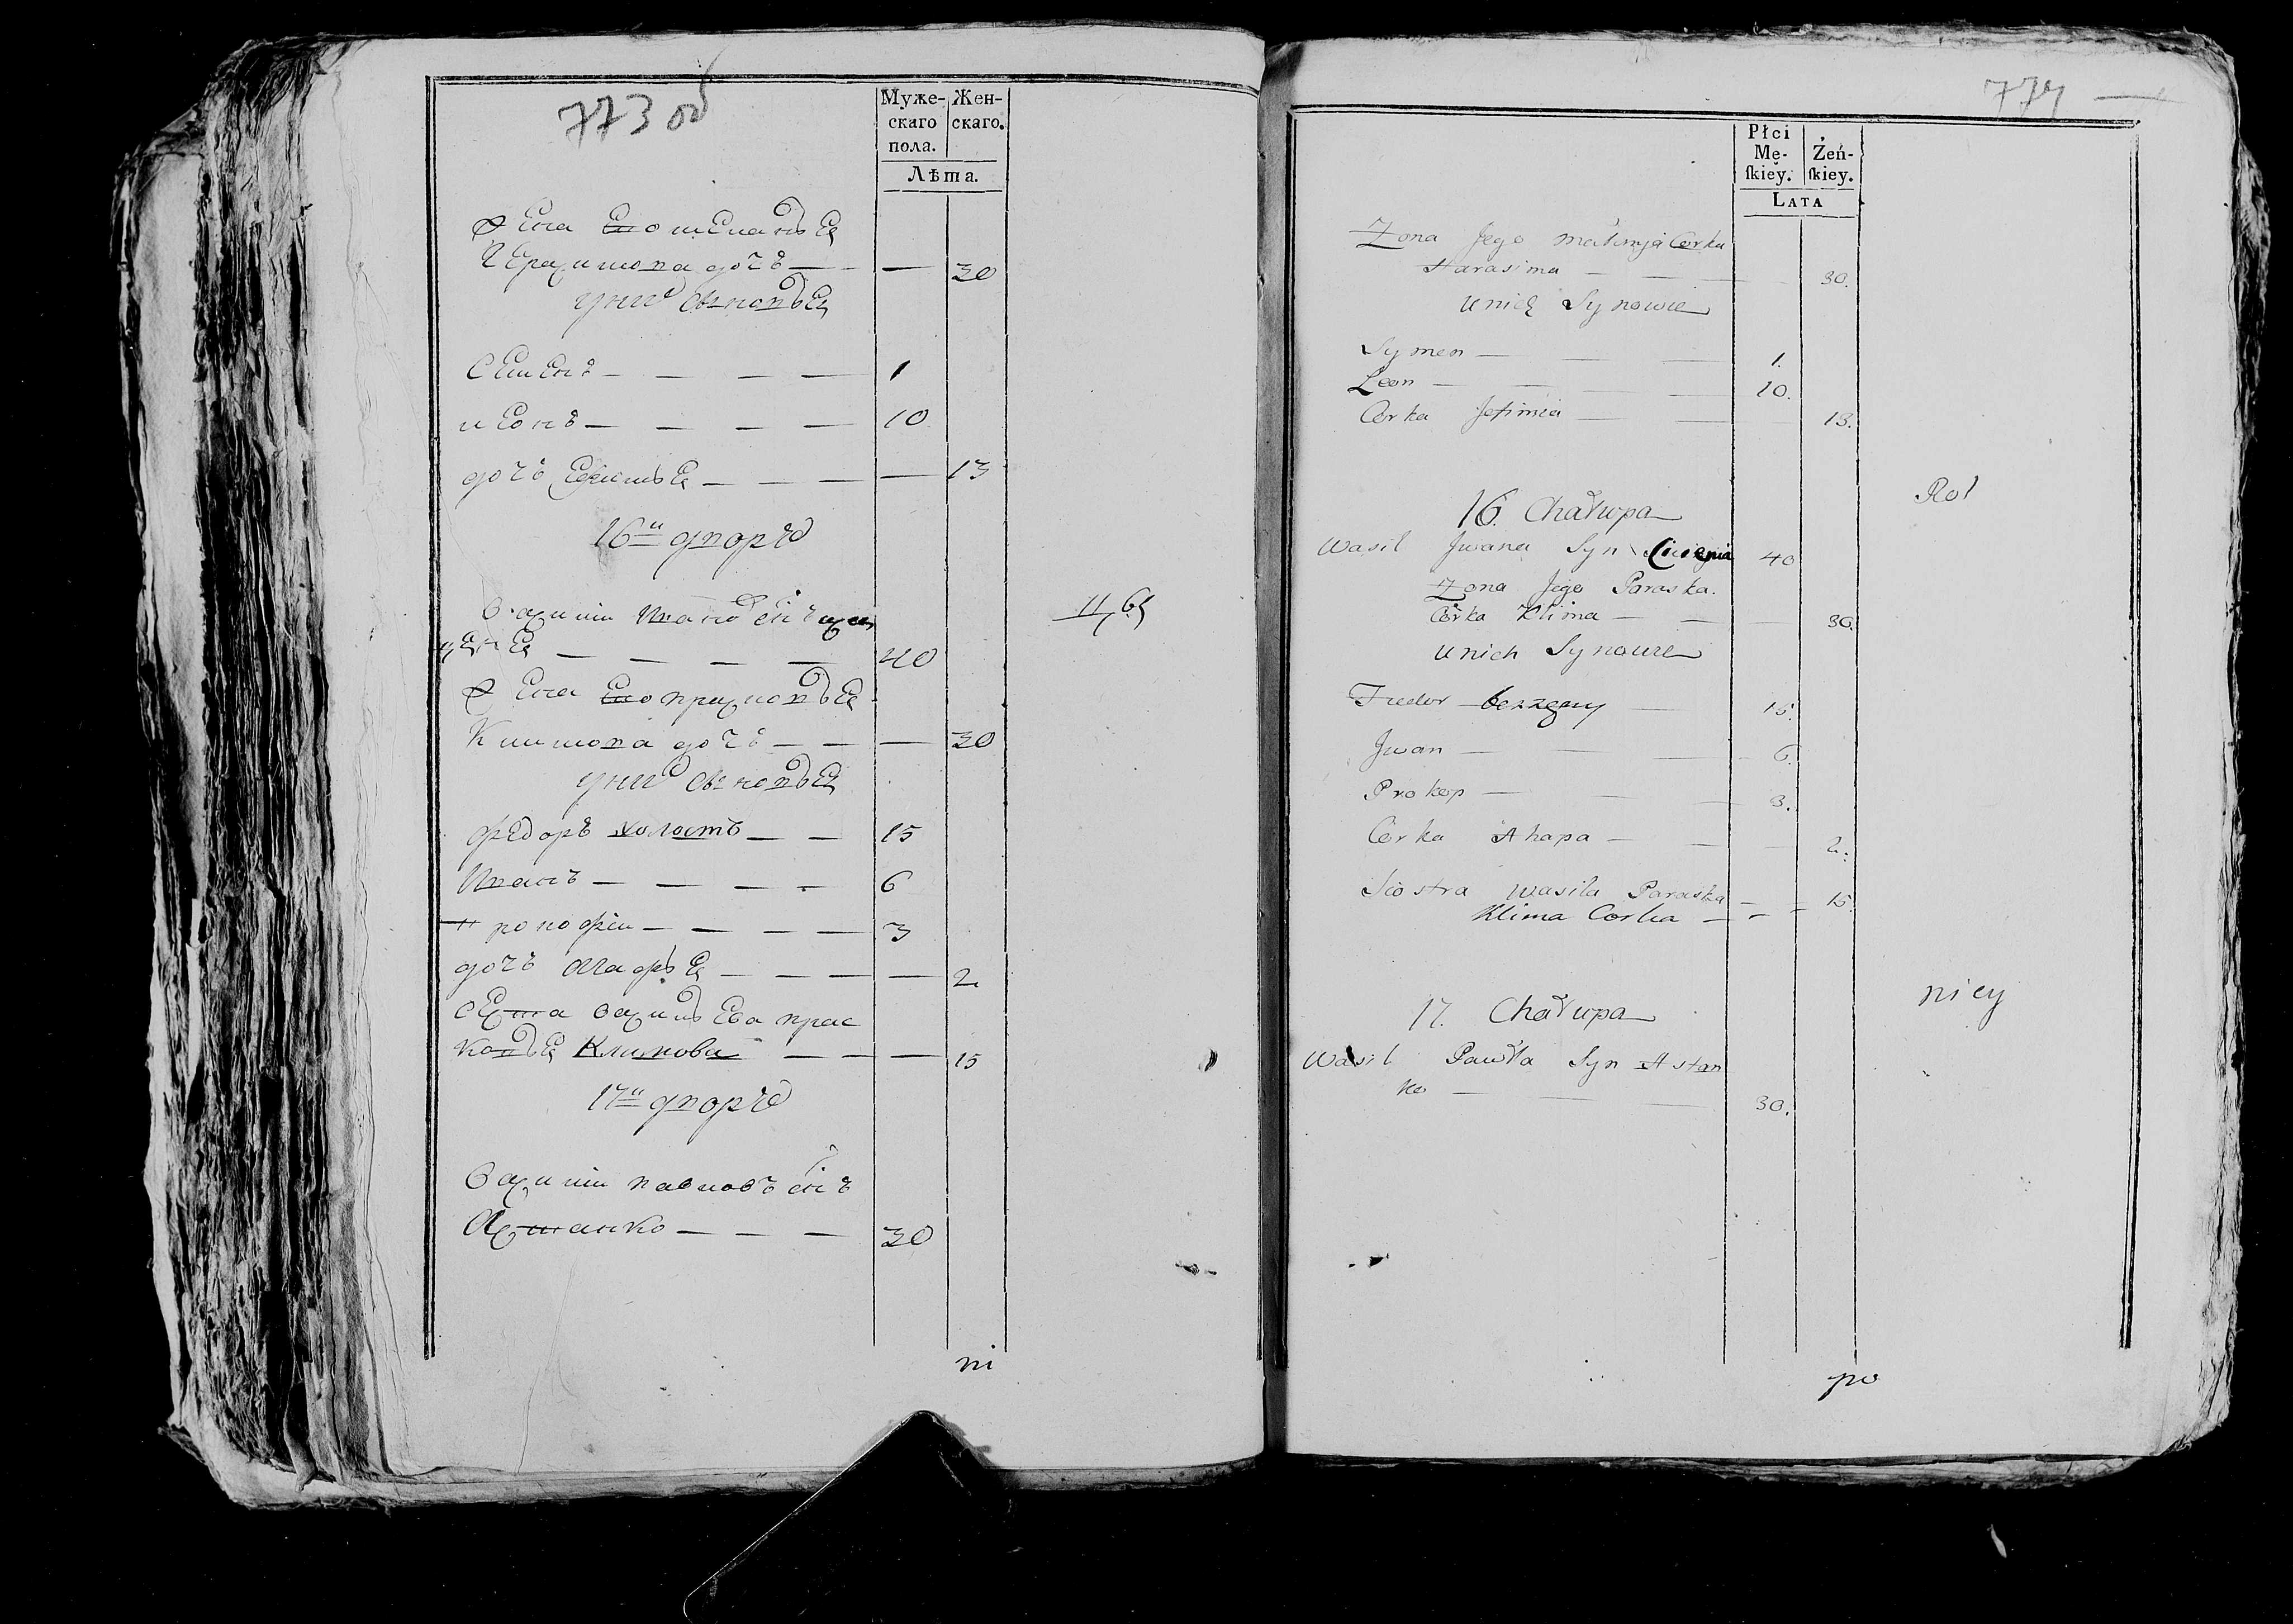 773 об
Муже- Жен-
скаго скаго.
пола.
Лѣта.
Жена Его
Герасимова дочъ — — 30
у них Сыновья
Семенъ — — — — 1
Леонъ — — — — 10
дочъ Ефимья — — — — 13
16й дворъ
Василiй Иванов снъ
40
Жена Его прасковья
Климова дочъ — — — 30
у них Сыновья
Федоръ холостъ — — 15
Иванъ — — — — 6
Прокофiй — — — — 3
дочъ Агафья — — — — 2
Сестра Васильева прас
ковья Климова — — — 15
17й дворъ
Василiй павловъ снъ
Астанко — — — 30
ni
774
Płci
Mę- Żeń-
ſkiey. ſkiey.
LATA
Zona Jego Corka
Harasima — — 30.
u nich Synowie
Symen — — — 1.
Leon — — — 10.
Corka Jefimia — — 13.
16. Chałupa
Rol
Wasil Jwana Syn 40
Zona Jego Paraska.
Corka Klima — — 30.
u nich Synowie
Fiedor bezzenny — 15.
Jwan — — — 6.
Prokop — — — 3.
Corka Ahapa — — 2.
Siostra Wasila Paraska — — 15.
Klima Corka — — —
17. Chałupa
niey
Wasil Pawła Syn Astan
ko — — — 30.
po